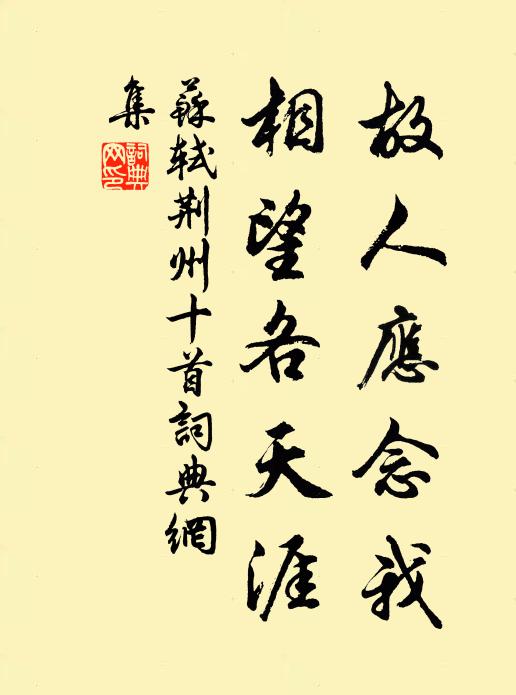 故人應念我
相望各天涯
蘇軾荆州十首詞典網
集
詞典網印